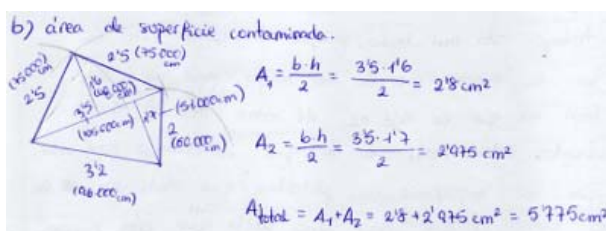 b) área de superficie contaminada.
2'5 (75.000)
cm
(75.000)
cm
2'5
1'6
(48.000)
cm
3'5
(105.000cm)
1'7
(51.000cm)
2
(60.000)
cm
3'2
(96.000cm)
A₁ = b·h / 2 = 3'5·1'6 / 2 = 2'8 cm²
A₂ = b·h / 2 = 3'5·1'7 / 2 = 2'975 cm²
Atotal = A₁+A₂ = 2'8+2'975 cm² = 5'775cm²